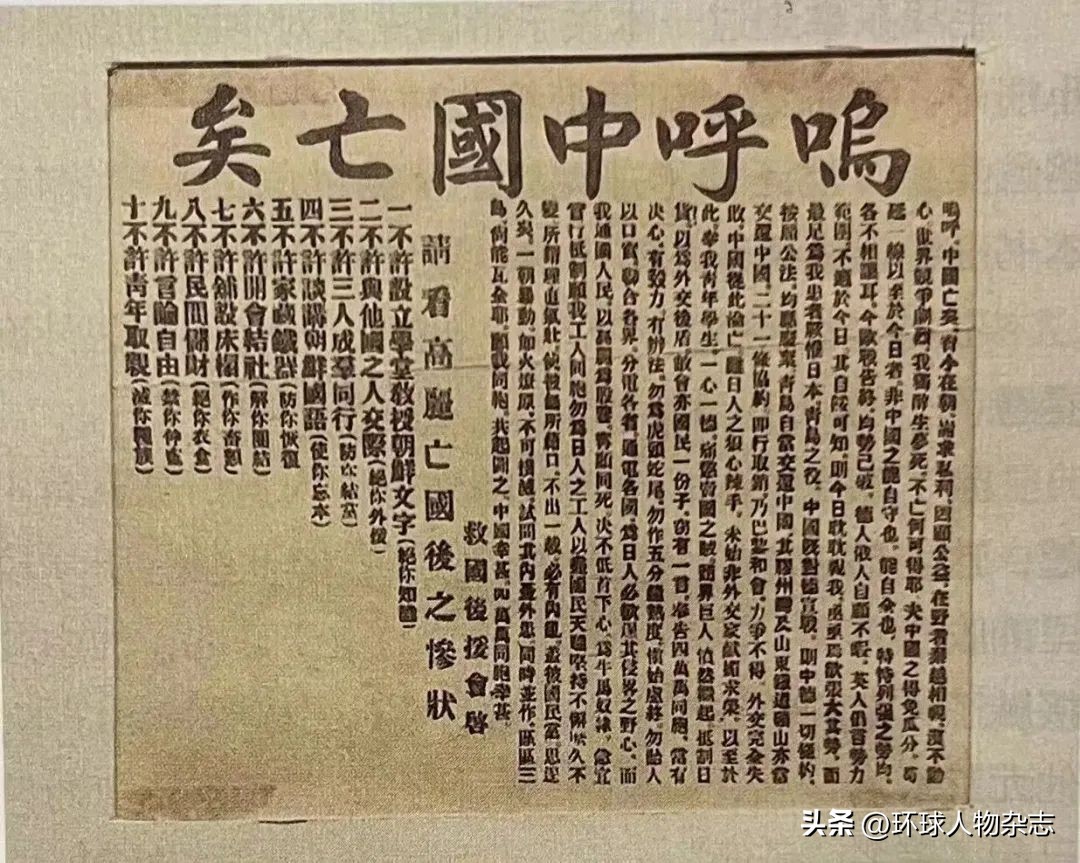 嗚呼中國亡矣
嗚呼、中國亡矣、宵小在朝、崙求私利、罔顧公益、在野者秦越相視、漠不動
心、世界競爭劇烈、我獨醉生夢死、不亡何可得耶、夫中國之得免瓜分、苟
延一線以至於今日者、非中國之能自守也、能自全也、特恃列强之勢均、
各不相讓耳、今歐戰告終、均勢已破、德人俄人自顧不暇、英人仍首勢力
範圍、不邇於今日、其自餒可知、則今日耽耽視我、亟亟焉欲張大其勢、而
最足爲我患者厥惟日本、青島之役、中國旣對德宣戰、則中德一切條約、
按願公法、均應廢棄、青島自當交還中國、其膠州灣及山東鐵道礦山亦當
交還中國、二十一條協約、即行取銷、乃巴黎和會、力爭不得、外交完全失
敗、中國從此淪亡、雖日人之狼心辣手、未始非外交家獻媚求榮、以至於
此、幸我靑年學生、一心一德、痛懲賣國之賊、商界巨人、憤然繼起、抵制日
貨、以爲外交後盾、敝會亦國民一份子、竊有一言、奉告四萬萬同胞、當有
決心、有毅力、有辨法、勿爲虎頭蛇尾、勿作五分鐘熱度、愼始慮終、勿貽人
以口實、聯合各界、分電各省、通電各國、爲日人必欲逞其侵畧之野心、而
我通國人民、以爲 同死、決不低首下心、爲牛馬奴隸、急宜
實行抵制、願我工人同胞勿爲日人之工人以盡國民天職、堅持不懈、久不
變、所謂理直氣壯、使彼無所藉口、不出一載、必有內亂、蓋彼國民黨、思逞
久矣、一朝暴動、如火燎原、不可撲滅、試問其內憂外患、同時並作、區區三
島、尙能瓦全耶、願我同胞、共起圖之、中國幸甚、四萬萬同胞幸甚、
救國後援會啓
請看高麗亡國後之慘狀
一不許設立學堂敎授朝鮮文字(絕你知識)
二不許與他國之人交際(絕你外援)
三不許三人成羣同行(防你結黨)
四不許談講朝鮮國語(使你忘本)
五不許家藏鐵器(防你恢復)
六不許開會結社(解你團結)
七不許舖設床榻(作你畜類)
八不許民間儲財(絕你衣食)
九不許言論自由(禁你伸寃)
十不許靑年取親(滅你種族)
头条 @环球人物杂志